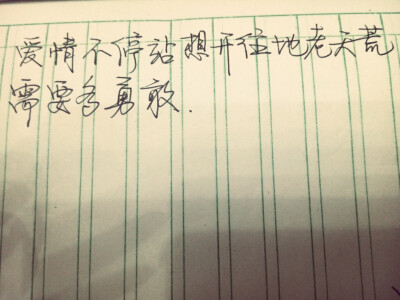 爱情不停站想开往地老天荒
需要多勇敢.